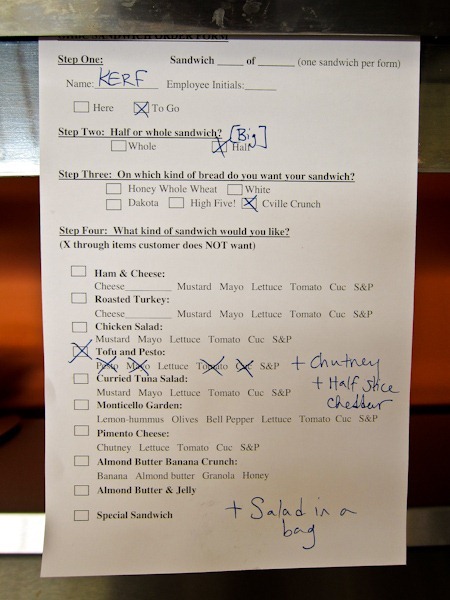 SANDWICH ORDER FORM
Step One: Sandwich _____ of _______ (one sandwich per form)
Name: KERF Employee Initials:______
Here To Go
Step Two: Half or whole sandwich? [Big]
Whole Half
Step Three: On which kind of bread do you want your sandwich?
Honey Whole Wheat White
Dakota High Five! Cville Crunch
Step Four: What kind of sandwich would you like?
(X through items customer does NOT want)
Ham & Cheese:
Cheese_________ Mustard Mayo Lettuce Tomato Cuc S&P
Roasted Turkey:
Cheese_________ Mustard Mayo Lettuce Tomato Cuc S&P
Chicken Salad:
Mustard Mayo Lettuce Tomato Cuc S&P
Tofu and Pesto:
Pesto Mayo Lettuce Tomato Cuc S&P + Chutney
+ Half slice
cheddar
Curried Tuna Salad:
Mustard Mayo Lettuce Tomato Cuc S&P
Monticello Garden:
Lemon-hummus Olives Bell Pepper Lettuce Tomato Cuc S&P
Pimento Cheese:
Chutney Lettuce Tomato Cuc S&P
Almond Butter Banana Crunch:
Banana Almond butter Granola Honey
Almond Butter & Jelly
Special Sandwich + Salad in a
bag